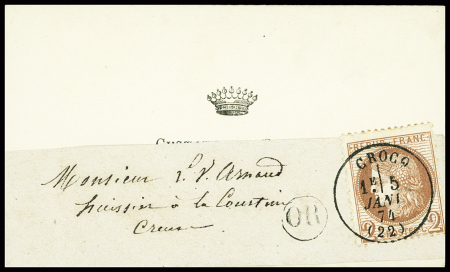 REPUB. FRANC.
CROCQ
1E 5
JANV
74
(22)
2
Monsieur
huissier à la Courtine
Creuse
OR